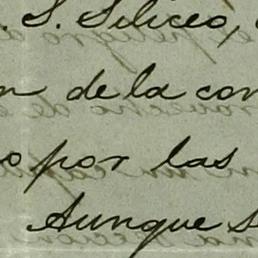 . S. Siliceo,
n de la con
o por las
Aunque s